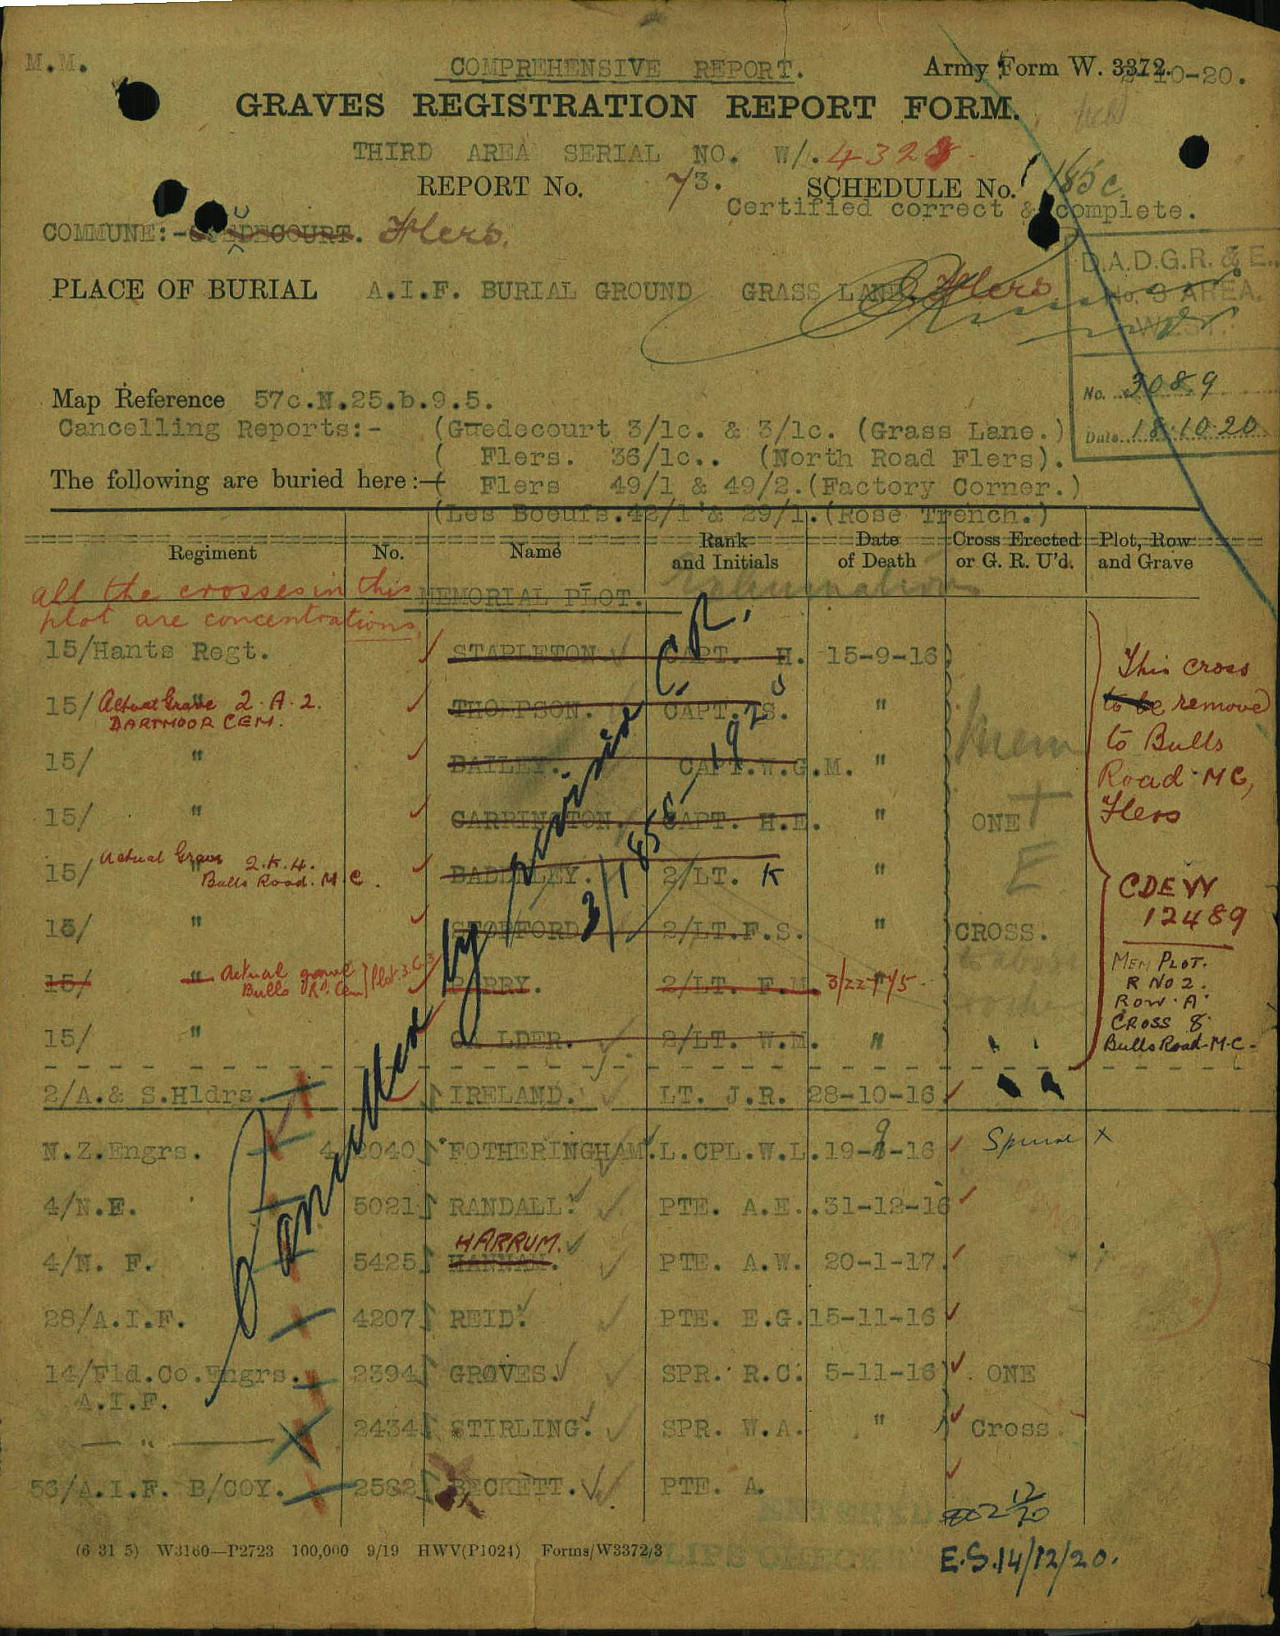 M.M.
COMPREHENSIVE REPORT.
Army Form W. 3372.
10-20.
GRAVES REGISTRATION REPORT FORM.
THIRD AREA SERIAL NO. W/. 4328.
REPORT No. 73. SCHEDULE No. 185c.
Certified correct & complete.
COMMUNE:- Flers.
D.A.D.G.R. & E.,
No. 3 AREA.
WEST.
PLACE OF BURIAL A.I.F. BURIAL GROUND GRASS LANE, Flers
No. 3089
Date 18·10·20
Map Reference 57c.N.25.b.9.5.
Cancelling Reports:- (Guedecourt 3/1c. & 3/1c. (Grass Lane.)
( Flers. 36/1c.. (North Road Flers).
The following are buried here :-( Flers 49/1 & 49/2.(Factory Corner.)
(Les Boeufs.42/1 & 29/1.(Rose Trench.)
Regiment No. Name Rank and Initials Date of Death Cross Erected or G. R. U'd. Plot, Row and Grave
all the crosses in this
plot are concentrations
MEMORIAL PLOT.
Exhumation
15/Hants Regt. STAPLETON CAPT. H. 15-9-16
15/ " Actual Grave 2.A.2. DARTMOOR CEM. THOMPSON. CAPT. S. "
15/ " BAILEY. CAPT.W.G.M. "
15/ " CARRINGTON. CAPT. H.E. " ONE
15/ " Actual Grave 2.K.4. Bulls Road. M.C. BADDELEY. 2/LT. K "
15/ " STOPFORD 2/LT.F.S. " CROSS.
15/ " Actual grave Bulls Rd. Cem Plot.3.C.3 PERRY. 2/LT. F.M. "
15/ " CALDER. 2/LT. W.M. "
Mem
E
This cross
to be removed
to Bulls
Road M C,
Flers
CDEW
12489
MEM PLOT.
R NO 2.
ROW. A.
CROSS 8.
Bulls Road-M.C-
Cancelled by
3/185c
C.R.
2/A.& S.Hldrs. IRELAND. LT. J.R. 28-10-16
N.Z.Engrs. 4 2040 FOTHERINGHAM. L.CPL.W.L. 19-9-16
4/N.F. 5021 RANDALL. PTE. A.E. 31-12-16
4/N. F. 5425 HARRUM. PTE. A.W. 20-1-17.
28/A.I.F. 4207 REID. PTE. E.G. 15-11-16
14/Fld.Co.Engrs. 2394 GROVES. SPR. R.C. 5-11-16 ONE
A.I.F.
" 2434 STIRLING. SPR. W.A. " Cross
53/A.I.F. B/COY. 2582 BECKETT. PTE. A.
(6 31 5) W3160—P2723 100,000 9/19 HWV(P1024) Forms/W3372/3
E.S.14/12/20.